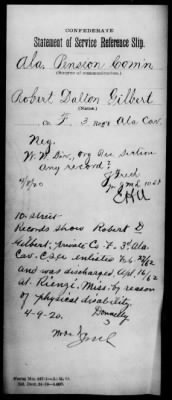 CONFEDERATE
Statement of Service Reference Slip.
Ala. Pension Com'n
(Source of communication.)
Robert Dalton Gilbert
(Name.)
Co F. 3 Reg't Ala Cav.
Neg.
W. W. Div., Org Rec Section
any record?
4/8/20
10 street
Records show Robert D
Gilbert, Private Co F. 3d Ala.
Cav. C.S.A. enlisted Feb 22/62
and was discharged Apr. 16/62
at Rienzi, Miss. by reason
of physical disability.
4-9-20. Donnelly